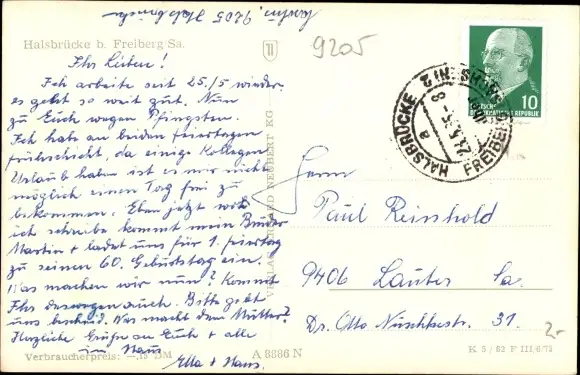 Halsbrücke b. Freiberg Sa.
9205
Ihr Lieben!
Ich arbeite seit 25./5 wieder,
es geht so weit gut. Nun
zu Euch wegen Pfingsten.
Ich hab an beiden feiertagen
frühschicht, da einige Kollegen
Urlaub haben ist es mir nicht
möglich einen Tag frei zu
bekommen. Eben jetzt wo
ich schreibe kommt mein Bruder
Martin + ladet uns für 1. feiertag
zu seinen 60. Geburtstag ein.
Was machen wir nun? Kommt
Ihr deswegen auch. Bitte gebt
uns bescheid. Was macht den Mutter?
Herzliche Grüße an Euch + alle
im Haus
Ella + Hans.
Verbraucherpreis: –,15 DM
A 3886 N
VERLAG ERHARD NEUBERT KG
HALSBRÜCKE
FREIBERG
a
DEUTSCHE
DEMOKRATISCHE REPUBLIK
10
Herrn
Paul Reinhold
9406 Lauter Sa.
Dr. Otto Nuschkestr. 31.
2.-